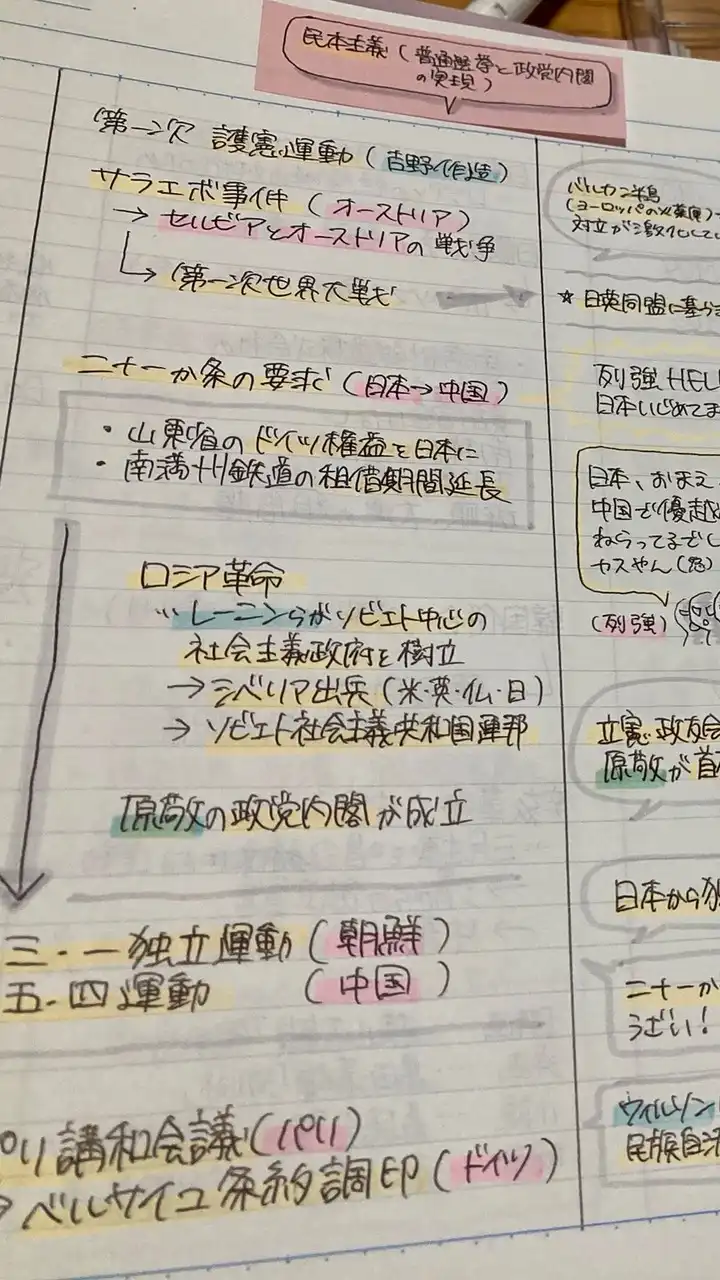 民本主義(普通選挙と政党内閣
の実現)
第一次 護憲運動(吉野作造)
サラエボ事件(オーストリア)
→ セルビアとオーストリアの戦争
→ 第一次世界大戦
二十一か条の要求(日本→中国)
・山東省のドイツ権益を日本に
・南満州鉄道の租借期間延長
ロシア革命
…レーニンらがソビエト中心の
社会主義政府を樹立
→シベリア出兵(米・英・仏・日)
→ ソビエト社会主義共和国連邦
原敬の政党内閣が成立
三・一独立運動(朝鮮)
五・四運動 (中国)
パリ講和会議(パリ)
→ベルサイユ条約調印(ドイツ)
バルカン半島
(ヨーロッパの火薬庫)
対立が激化してい
★日英同盟に基づき
列強 HEL
日本いじめてま
日本、おまえ
中国で優越
ねらってるでし
カスやん(怒)
(列強)
立憲政友会
原敬が首
日本から独
二十一か
うざい!
ウィルソン
民族自決